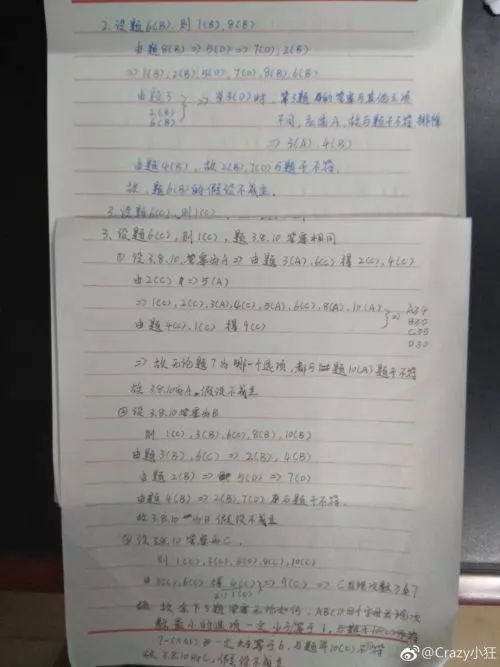 2. 设题6(B), 则1(B), 8(B)
由题8(B) ⇒ 5(D) ⇒ 7(D), 2(B)
⇒ 1(B), 2(B), 5(D), 7(D), 8(B), 6(B)
由题3
2(B)
6(B)
⇒ 当3(D)时, 第3题的答案与其他三项
不同, 应选A, 故与题干不符 排除
⇒ 3(A), 4(B)
由题4(B), 故2(B), 7(D)与题干不符.
故, 题6(B)的假设不成立.
3. 设题6(C), 则1(C)
3. 设题6(C), 则1(C), 题3.8.10答案相同
① 设3.8.10.答案为A ⇒ 由题3(A), 6(C)得2(C), 4(C)
由2(C) ⇒ 5(A)
⇒ 1(C), 2(C), 3(A), 4(C), 5(A), 6(C), 8(A), 10(A)
由题4(C), 1(C) 得9(C)
⇒ A34
B30
C35
D30
⇒ 故无论题7为哪一个选项, 都与题10(A)题干不符
故3.8.10为A, 假设不成立
② 设3.8.10答案为B
则 1(C), 3(B), 6(C), 8(B), 10(B)
由题3(B), 6(C) ⇒ 2(B), 4(B)
由题2(B) ⇒ 5(D) ⇒ 7(D)
由题4(B) ⇒ 2(B), 7(D) 与题干不符.
故3.8.10为B 假设不成立
③ 设3.8.10 答案为C.
则 1(C), 3(C), 6(C), 8(C), 10(C)
由3(C), 6(C) 得 4(C) ⇒ 9(C) ⇒ C出现次数≥6 7
故余下3题答案无论如何, ABCD四个字母出现次
数最小的选项一定小于等于1, 与题干10(C)
一定大于等于6, 与题10(C)不符
故3.8.10为C, 假设不成立
@Crazy小狂